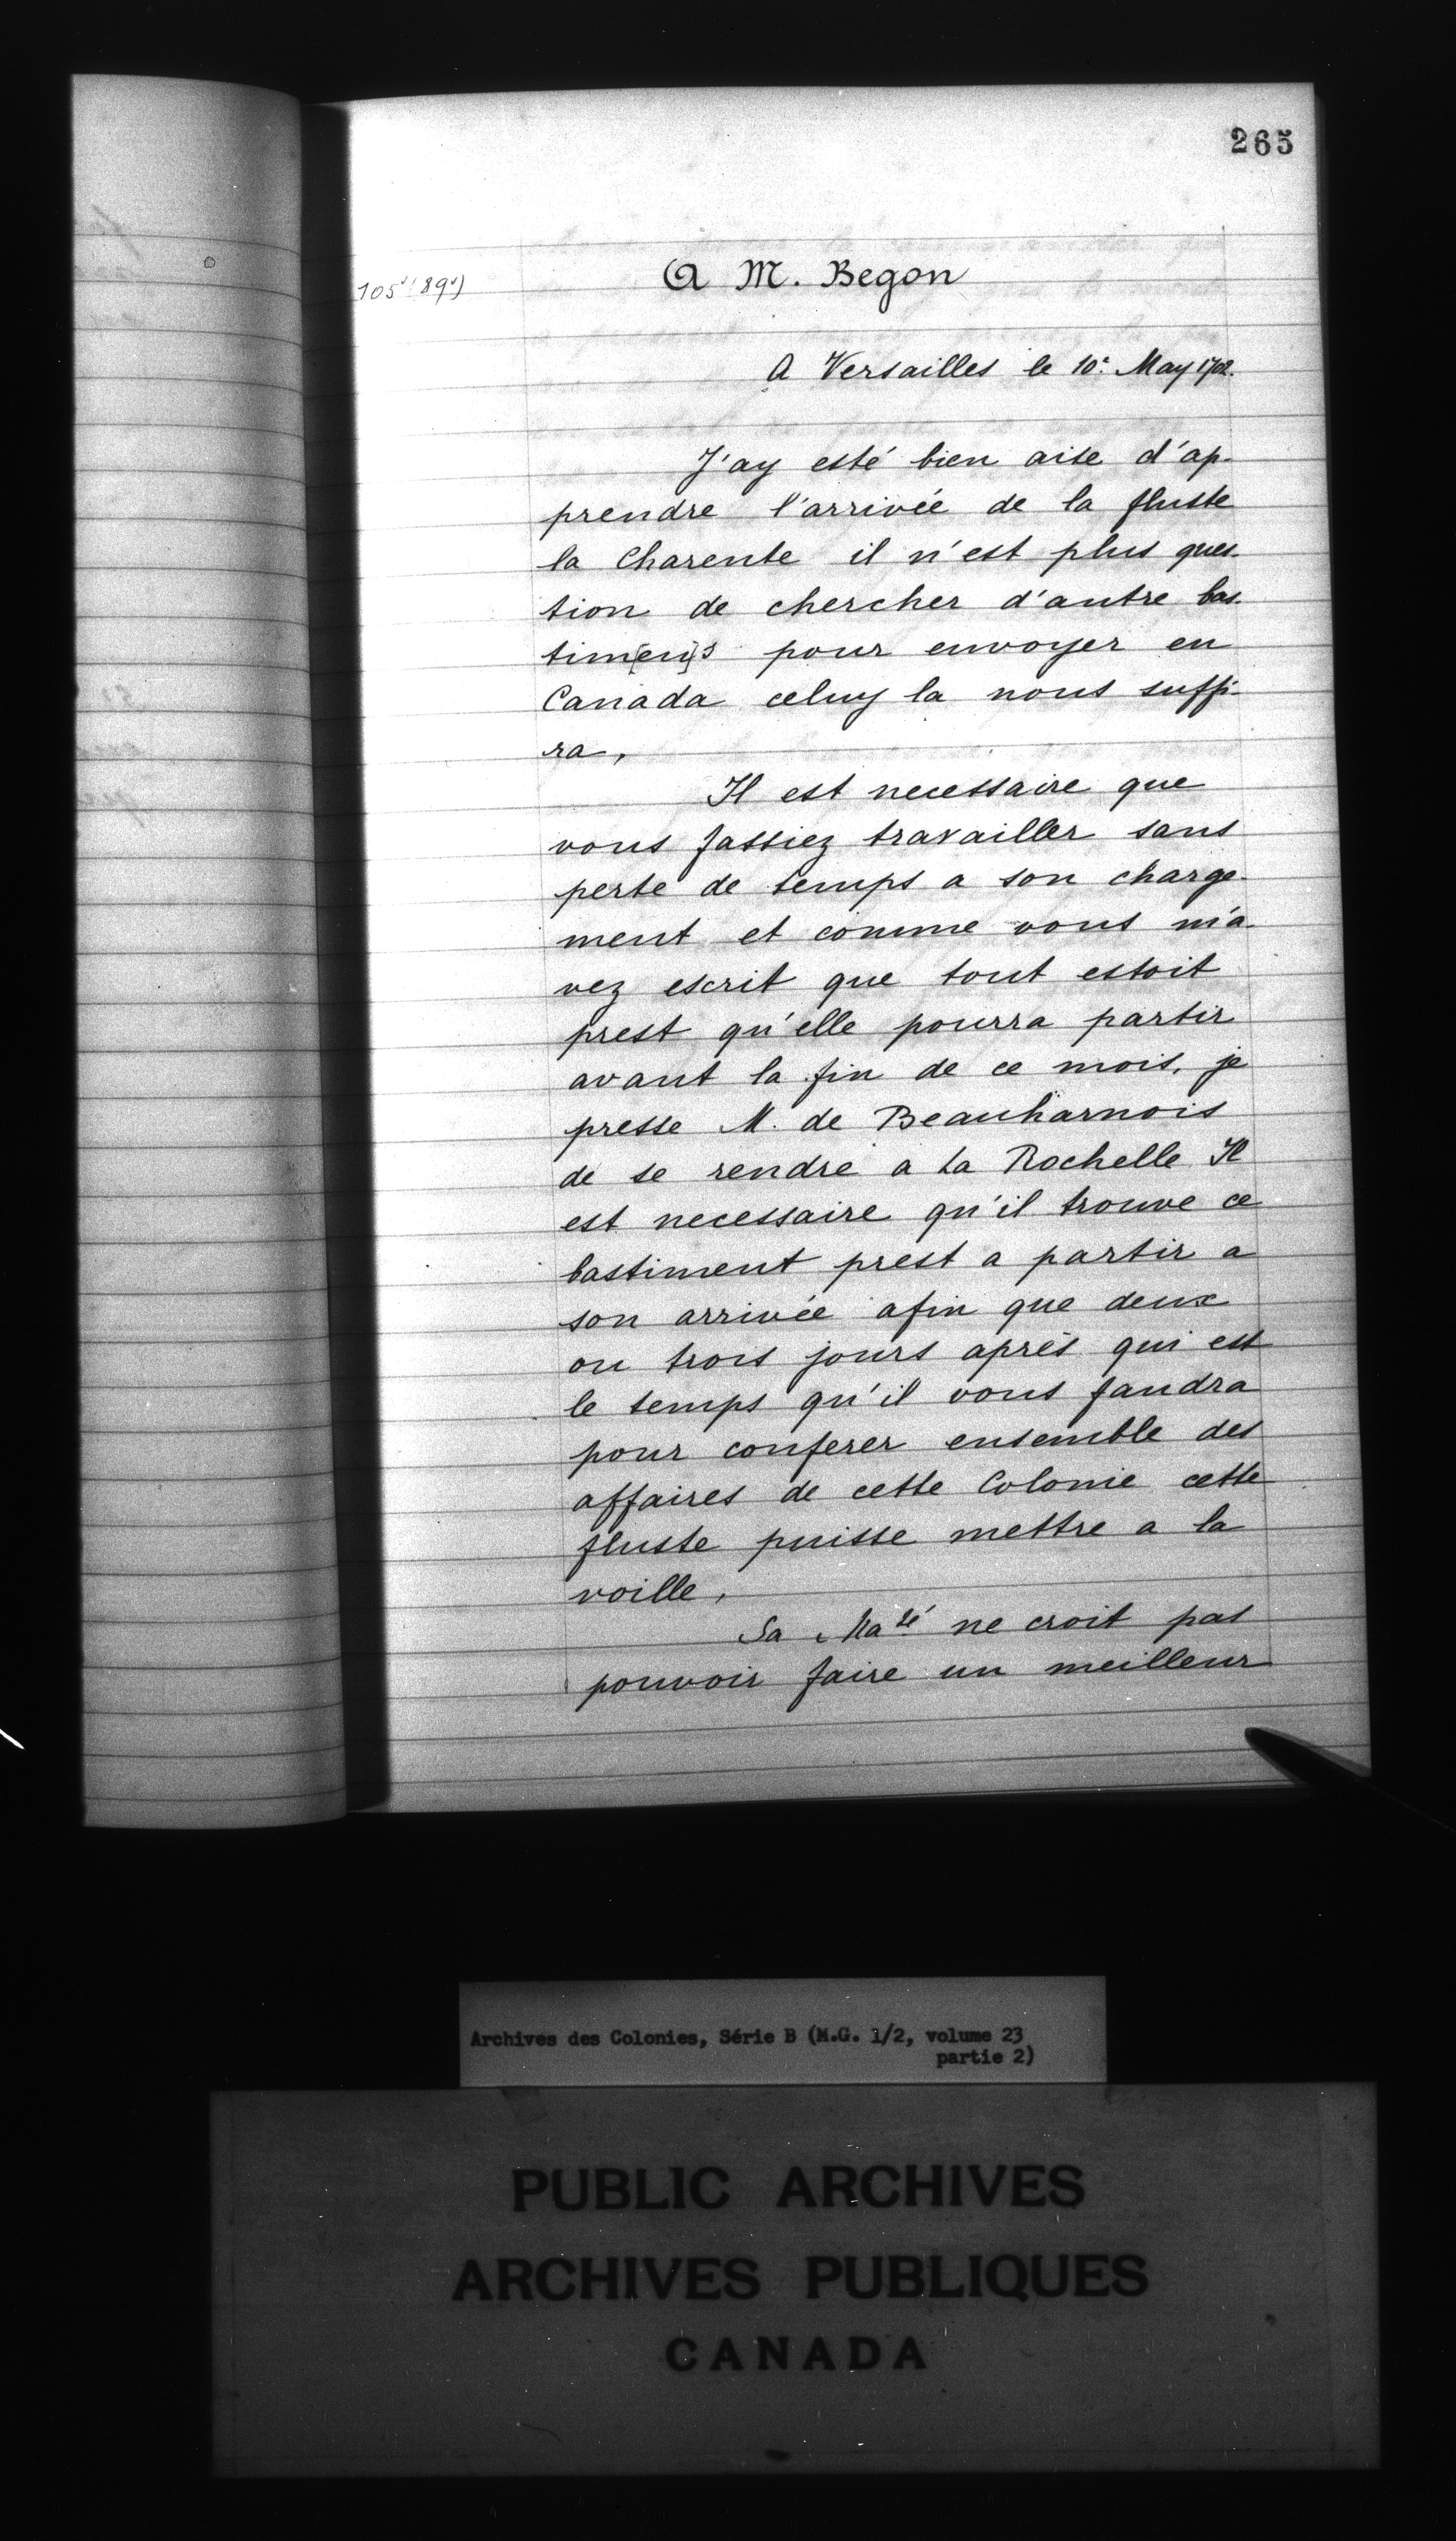 265
105v (89v)
A M. Begon
A Versailles le 10e May 1702.
J'ay esté bien aise d'ap-
prendre l'arrivée de la fluste
la Charente il n'est plus ques-
tion de chercher d'autre bas-
tim[en]s pour envoyer en
Canada celuy la nous suffi-
ra,
Il est necessaire que
vous fassiez travailler sans
perte de temps a son charge-
ment et comme vous m'a-
vez escrit que tout estoit
prest qu'elle pourra partir
avant la fin de ce mois, je
presse M. de Beauharnois
de se rendre a la Rochelle Il
est necessaire qu'il trouve ce
bastiment prest a partir a
son arrivée afin que deux
ou trois jours aprés qui est
le temps qu'il vous faudra
pour conferer ensemble des
affaires de cette Colonie cette
fluste puisse mettre a la
voille,
Sa Maté ne croit pas
pouvoir faire un meilleur
Archives des Colonies, Série B (M.G. 1/2, volume 23
partie 2)
PUBLIC ARCHIVES
ARCHIVES PUBLIQUES
CANADA